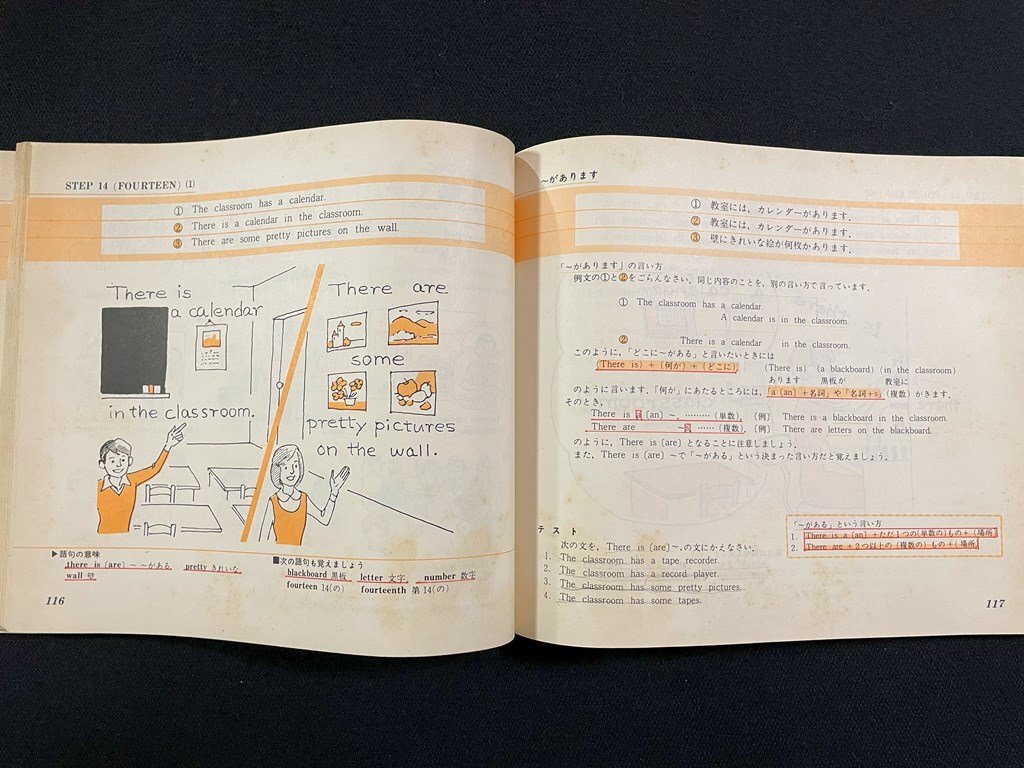 STEP 14 (FOURTEEN) (1)
① The classroom has a calendar.
② There is a calendar in the classroom.
③ There are some pretty pictures on the wall.
There is
a calendar
in the classroom.
There are
some
pretty pictures
on the wall.
▶語句の意味
there is〔are〕~ ~がある pretty きれいな
wall 壁
■次の語句も覚えましょう
blackboard 黒板 letter 文字 number 数字
fourteen 14(の) fourteenth 第14(の)
116
~があります
① 教室には、カレンダーがあります.
② 教室には、カレンダーがあります.
③ 壁にきれいな絵が何枚かあります.
「~があります」の言い方
例文の①と②をごらんなさい. 同じ内容のことを、別の言い方で言っています.
① The classroom has a calendar.
A calendar is in the classroom.
② There is a calendar in the classroom.
このように、「どこに~がある」と言いたいときには
(There is) + (何が) + (どこに). (There is) (a blackboard) (in the classroom)
あります 黒板が 教室に
のように言います.「何が」にあたるところには、「a〔an〕+名詞」や「名詞+s」(複数) がきます.
そのとき、
There is a〔an〕~. ……… (単数). 〔例〕 There is a blackboard in the classroom.
There are ~s …… (複数). 〔例〕 There are letters on the blackboard.
のように、There is〔are〕となることに注意しましょう.
また、There is〔are〕~で「~がある」という決まった言い方だと覚えましょう.
「~がある」という言い方
1. There is a〔an〕+ただ1つの(単数の)もの+(場所)
2. There are +2つ以上の(複数の)もの+(場所)
テスト
次の文を、There is〔are〕~.の文にかえなさい.
1. The classroom has a tape recorder.
2. The classroom has a record player.
3. The classroom has some pretty pictures.
4. The classroom has some tapes.
117